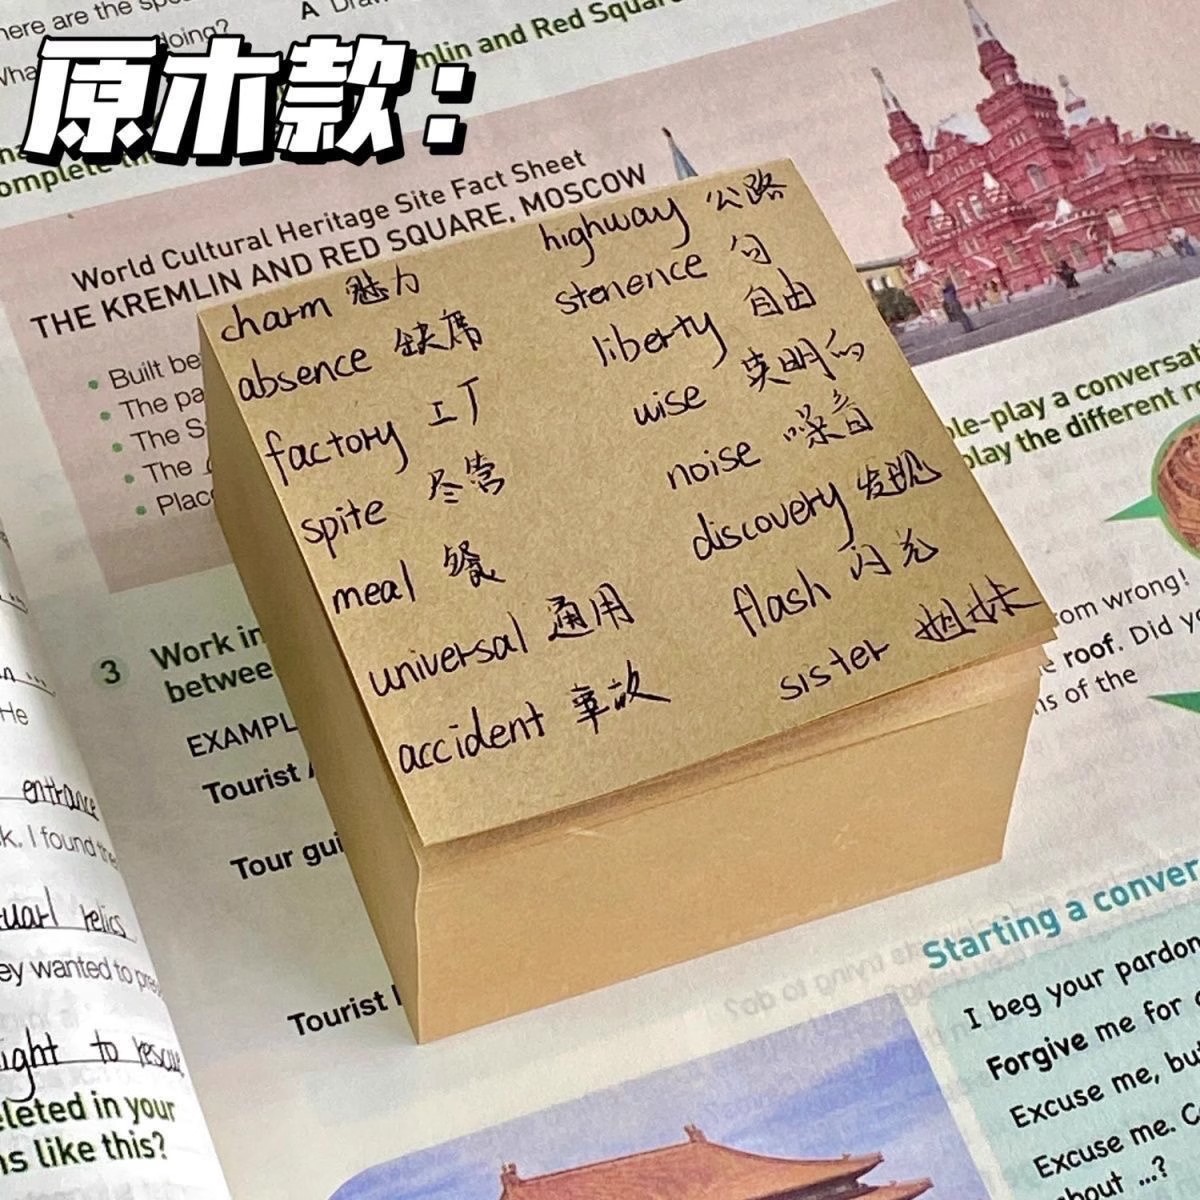 原木款:
World Cultural Heritage Site Fact Sheet
THE KREMLIN AND RED SQUARE, MOSCOW
mlin and Red Squar
doing?
• Built be
• The pa
• The S
• The
• Plac
charm 魅力
absence 缺席
factory 工厂
spite 尽管
meal 餐
universal 通用
accident 事故
highway 公路
stenence 句
liberty 自由
wise 英明的
noise 噪音
discovery 发现
flash 闪光
sister 姐妹
le-play a conversati
play the different r
3 Work in
betwee
EXAMPL
Tourist
Tour gui
Tourist
om wrong!
roof. Did yo
ns of the
He
entrance
k, I found the
relics
ey wanted to pre
ight to rescue
eleted in your
ns like this?
Starting a conver
I beg your pardon
Forgive me for
Excuse me, but
Excuse me. C
about ...?